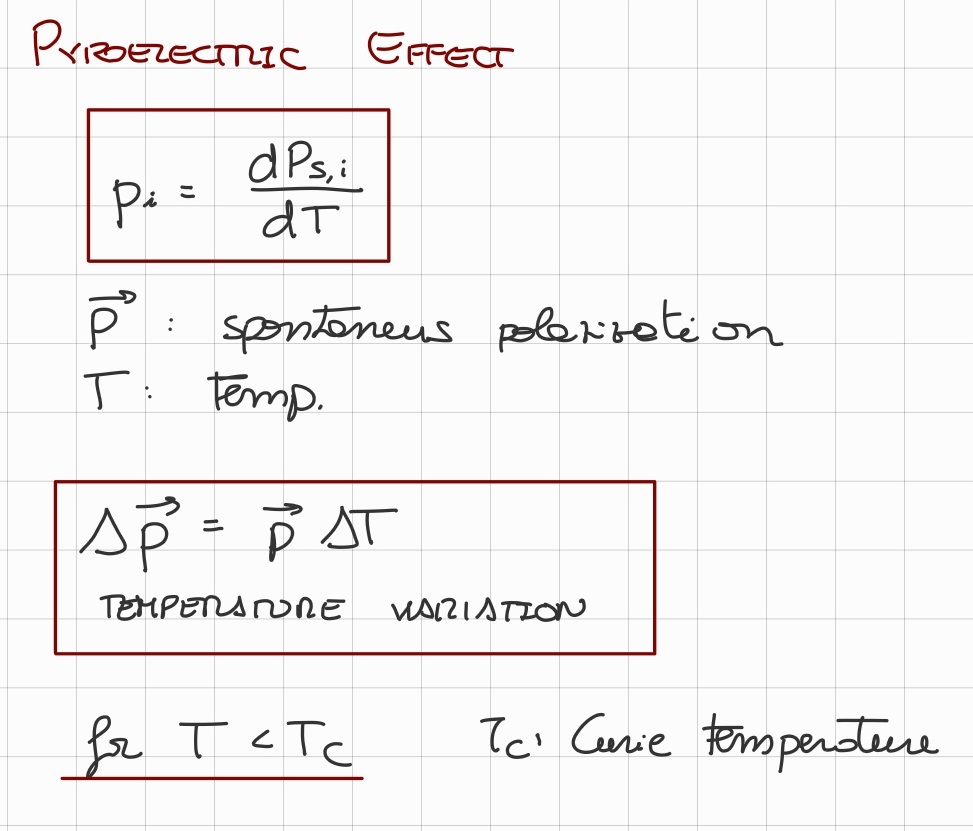 PYROELECTRIC EFFECT
pᵢ = dPs,i / dT
p⃗ : spontaneus polarization
T : temp.
Δp⃗ = p⃗ ΔT
TEMPERATURE VARIATION
for T < Tc Tc: Curie temperature